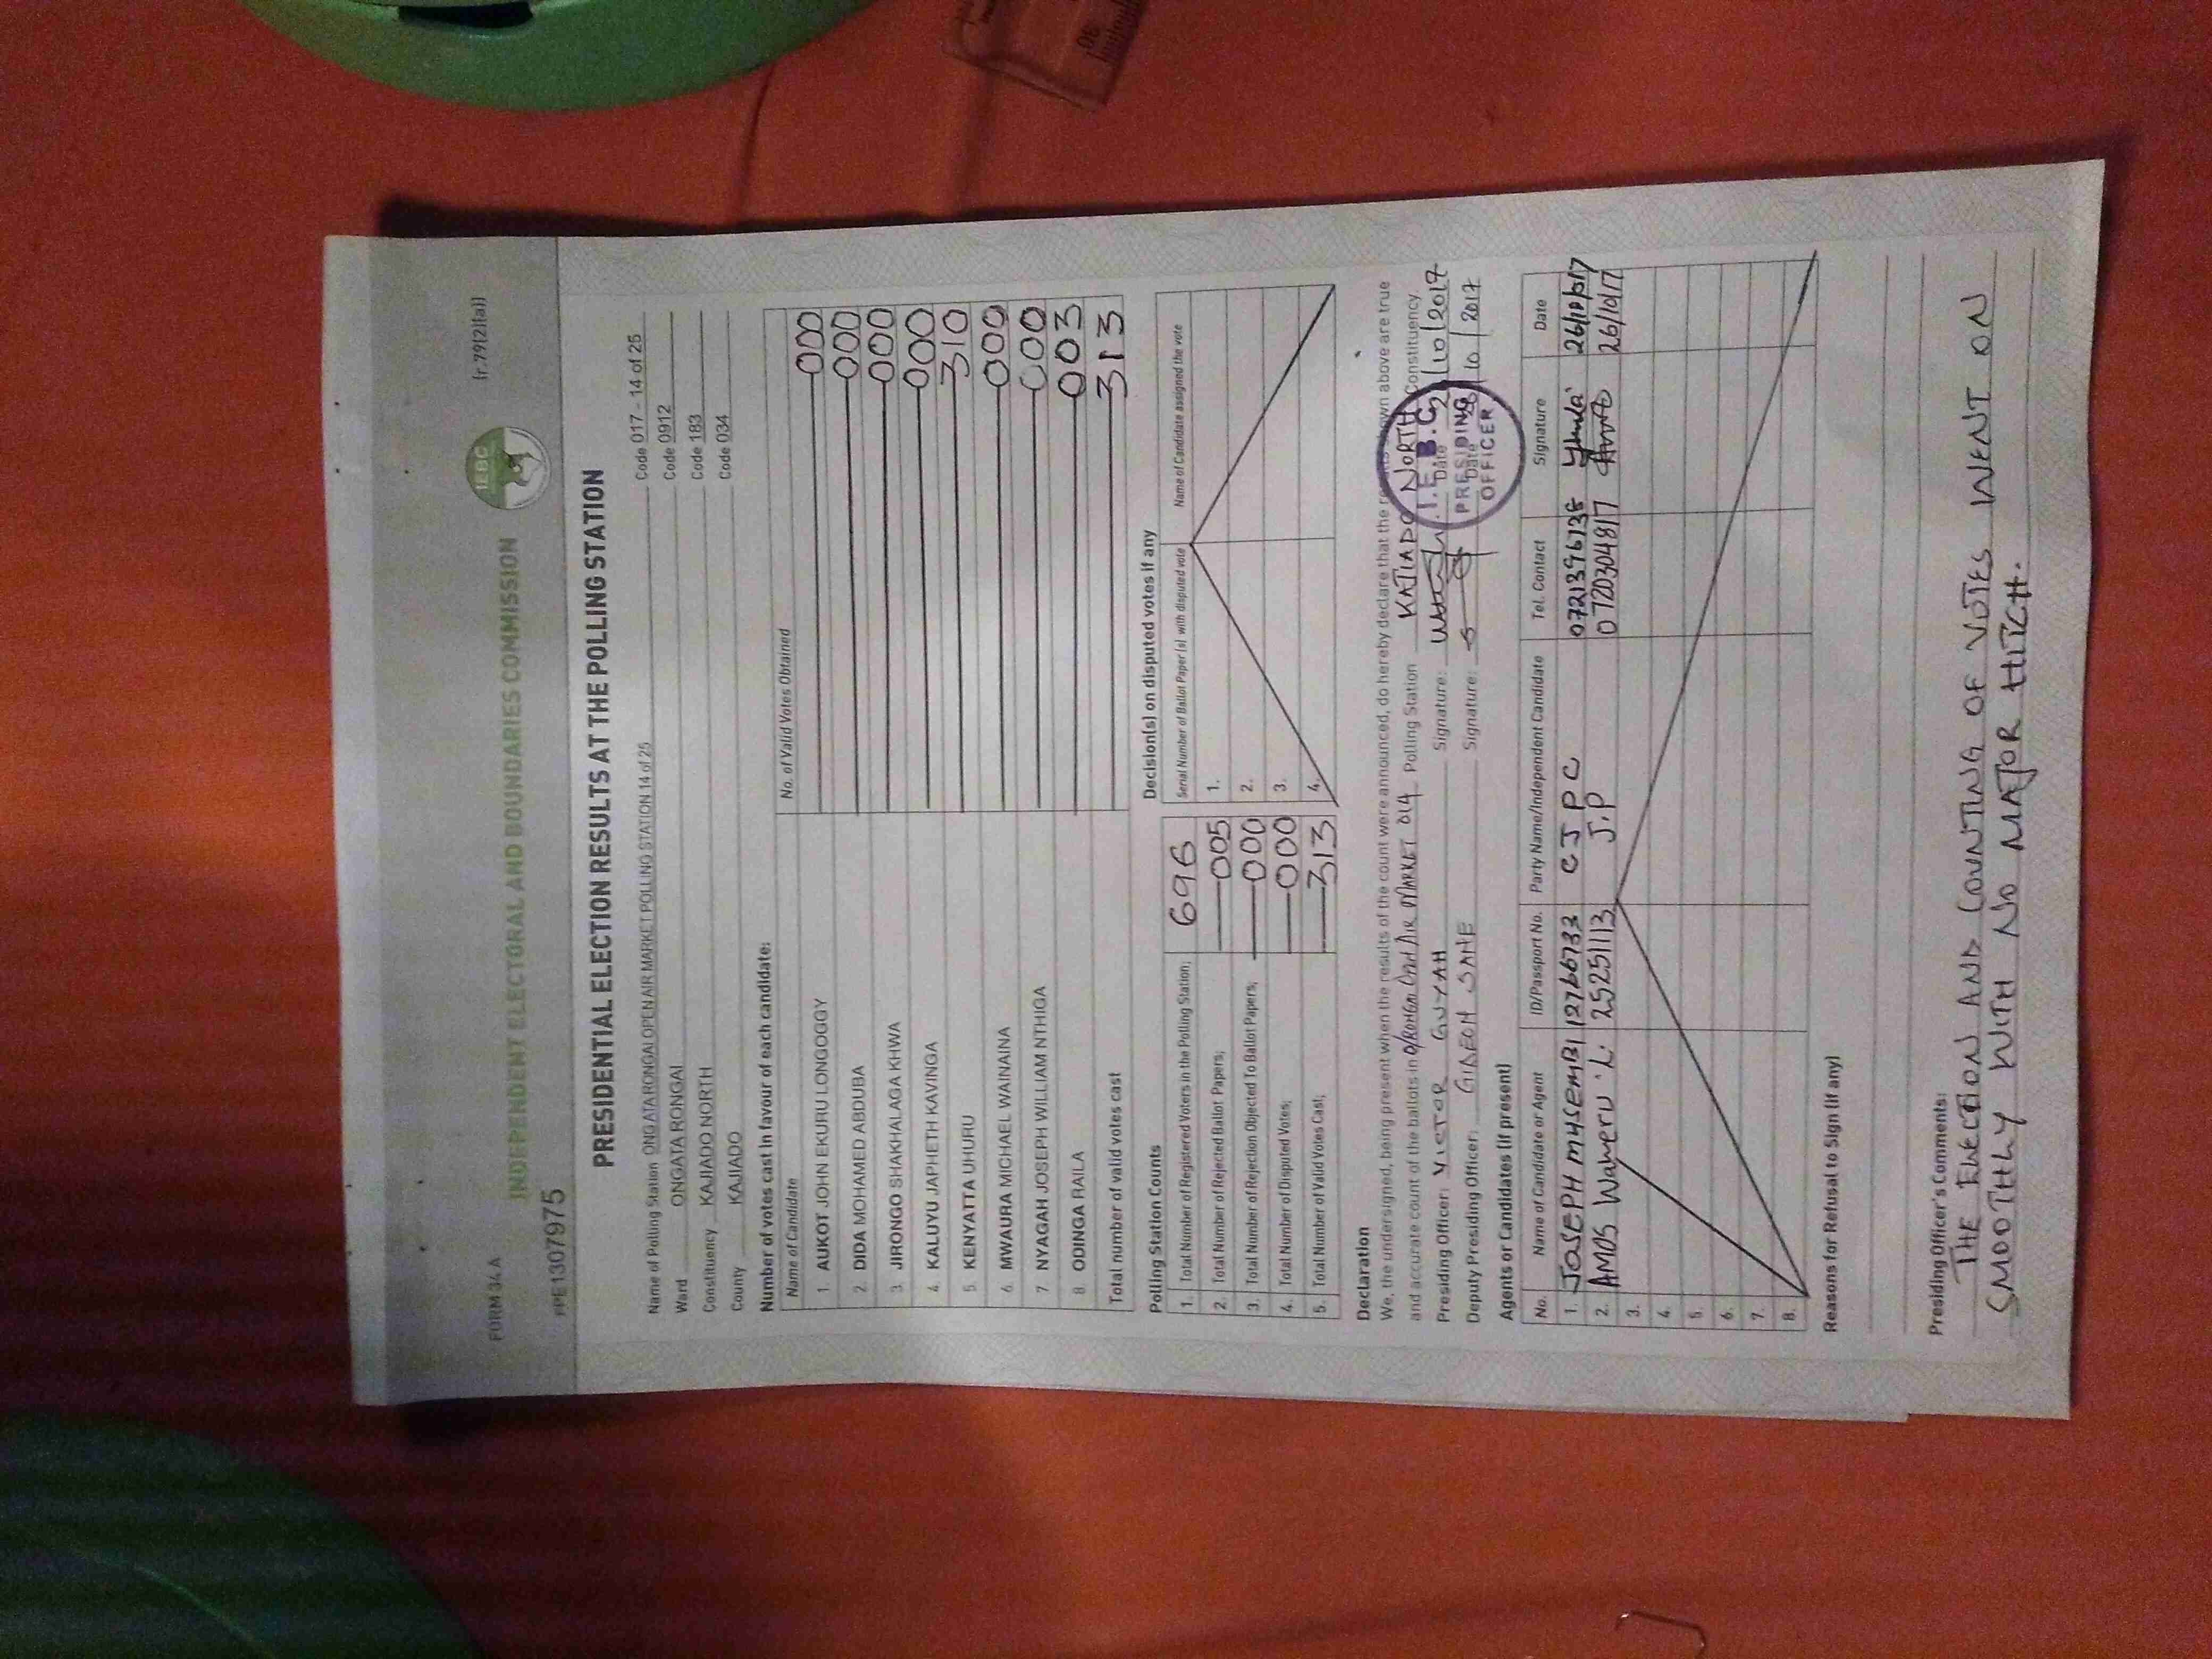 FORM 34 A
(r.79(2)(a))
IEBC
INDEPENDENT ELECTORAL AND BOUNDARIES COMMISSION
FPE1307975
PRESIDENTIAL ELECTION RESULTS AT THE POLLING STATION
Name of Polling Station ONGATA RONGAI OPEN AIR MARKET POLLING STATION 14 of 25 Code 017 - 14 of 25
Ward ONGATA RONGAI Code 0912
Constituency KAJIADO NORTH Code 183
County KAJIADO Code 034
Number of votes cast in favour of each candidate:
Name of Candidate No. of Valid Votes Obtained
1. AUKOT JOHN EKURU LONGOGGY 000
2. DIDA MOHAMED ABDUBA 000
3. JIRONGO SHAKHALAGA KHWA 000
4. KALUYU JAPHETH KAVINGA 000
5. KENYATTA UHURU 310
6. MWAURA MICHAEL WAINAINA 000
7. NYAGAH JOSEPH WILLIAM NTHIGA 000
8. ODINGA RAILA 003
Total number of valid votes cast 313
Polling Station Counts
1. Total Number of Registered Voters in the Polling Station; 696
2. Total Number of Rejected Ballot Papers; 005
3. Total Number of Rejection Objected To Ballot Papers; 000
4. Total Number of Disputed Votes; 000
5. Total Number of Valid Votes Cast; 313
Decision(s) on disputed votes if any
Serial Number of Ballot Paper (s) with disputed vote Name of Candidate assigned the vote
1.
2.
3.
4.
Declaration
We, the undersigned, being present when the results of the count were announced, do hereby declare that the results shown above are true
and accurate count of the ballots in O/RONGAI OPEN AIR MARKET 014 Polling Station KAJIADO NORTH Constituency.
Presiding Officer: VICTOR Signature: Date 10/2017
Deputy Presiding Officer: GIDEON SANE Signature: Date 10 / 2017
I.E.B.C.
PRESIDING
OFFICER
Agents or Candidates (if present)
No. Name of Candidate or Agent ID/Passport No. Party Name/Independent Candidate Tel. Contact Signature Date
1. JOSEPH MUSEMBI 12766733 CJPC 0721396138 26/10/2017
2. AMOS Waweru L. 25251113 J.P 0720304817 26/10/17
3.
4.
5.
6.
7.
8.
Reasons for Refusal to Sign (if any)
Presiding Officer's Comments:
THE ELECTION AND COUNTING OF VOTES WENT ON
SMOOTHLY WITH NO MAJOR HITCH.